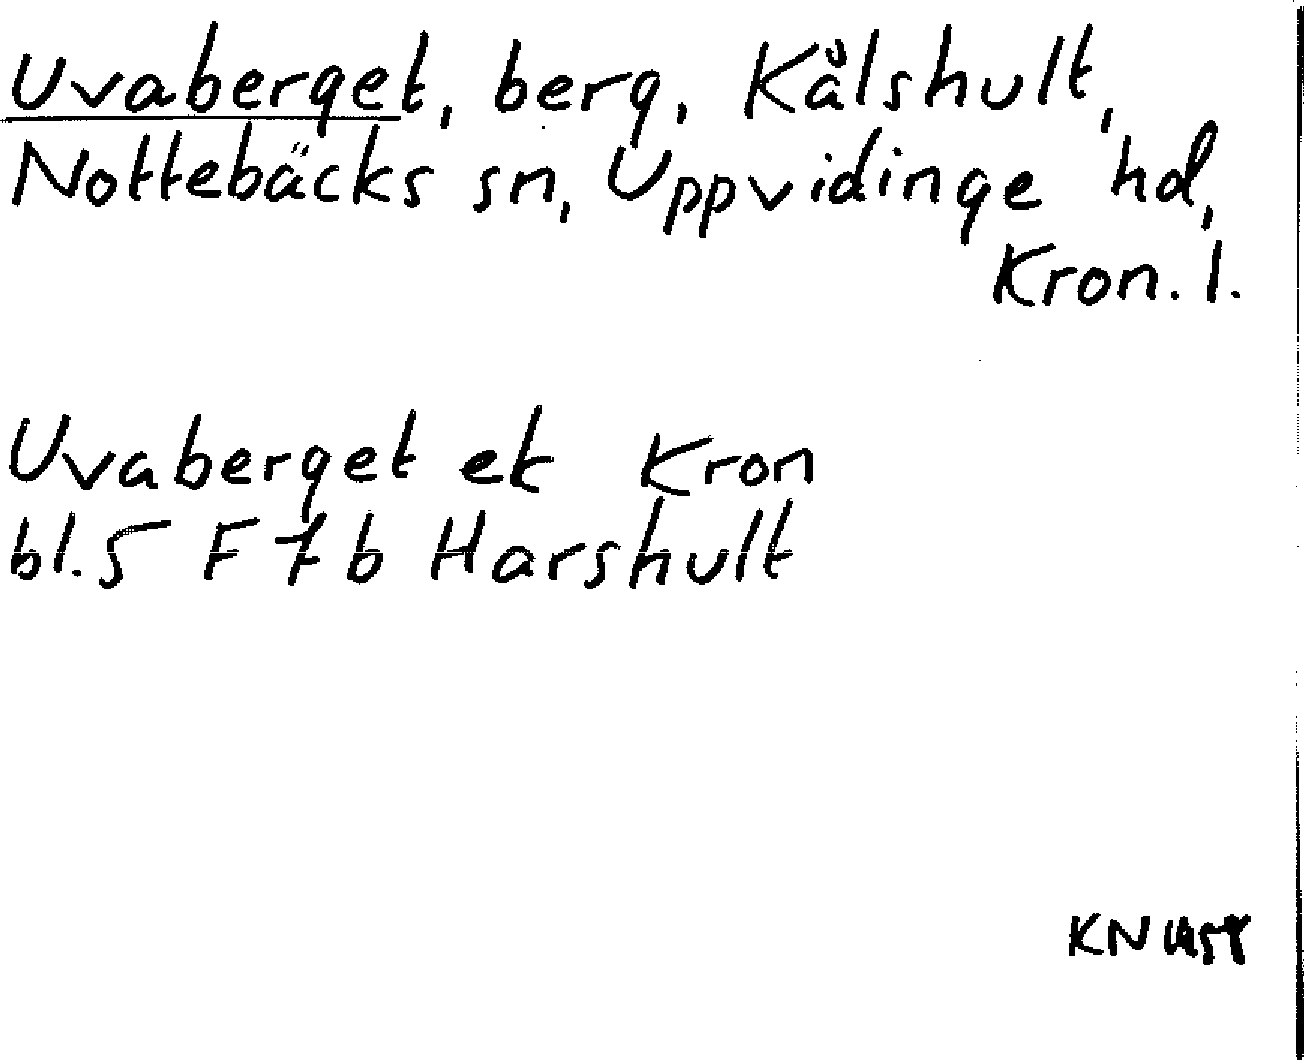 Uvaberget, berg, Kålshult,
Nottebäcks sn, Uppvidinge hd,
Kron. l.
Uvaberget ek Kron
bl. 5 F 7 b Harshult
KN